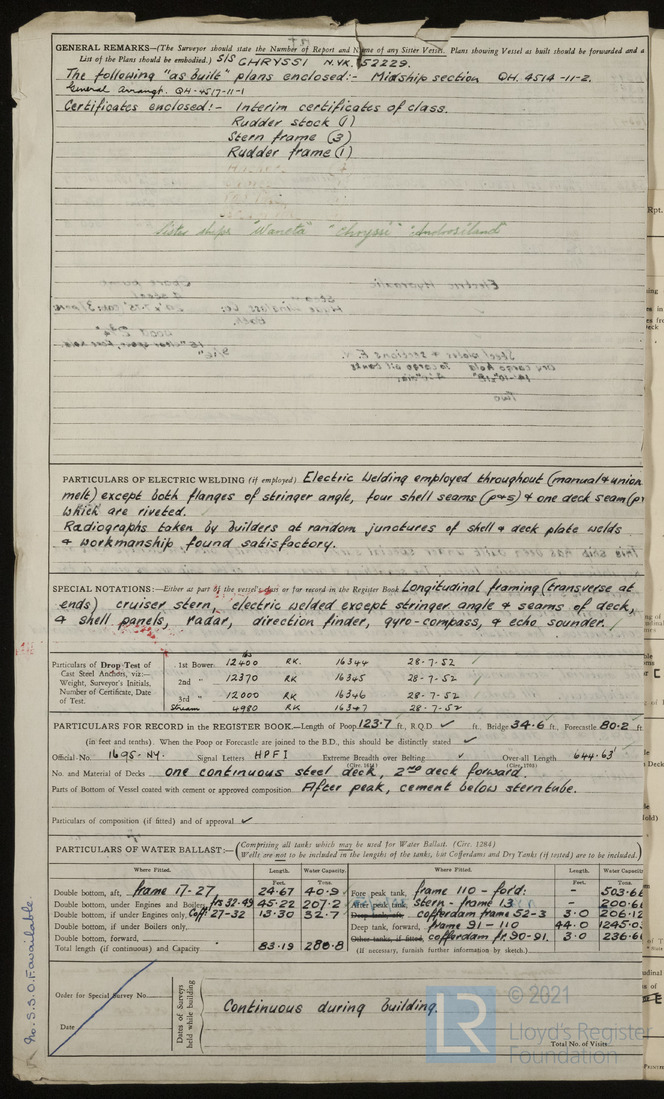 GENERAL REMARKS—(The Surveyor should state the Number of Report and Name of any Sister Vessel. Plans showing Vessel as built should be forwarded and a
List of the Plans should be embodied.) S/S CHRYSSI N.YK. 52229.
The following "as built" plans enclosed:- Midship section QH. 4514-11-2.
General Arrangt. QH-4517-11-1
Certificates enclosed:- Interim certificates of class.
Rudder stock (1)
Stern frame (3)
Rudder frame (1)
Sister ships "Waneta" "Chryssi" "Androsisland"
PARTICULARS OF ELECTRIC WELDING (if employed) Electric Welding employed throughout (manual & union
melt) except both flanges of stringer angle, four shell seams (p&s) & one deck seam (p
which are riveted.
Radiographs taken by builders at random junctures of shell & deck plate welds
& workmanship found satisfactory.
SPECIAL NOTATIONS:—Either as part of the vessel's class or for record in the Register Book Longitudinal framing (transverse at
ends) cruiser stern, electric welded except stringer angle & seams of deck,
& shell panels, radar, direction finder, gyro-compass, & echo sounder.
Particulars of Drop Test of Cast Steel Anchors, viz:— Weight, Surveyor's Initials, Number of Certificate, Date of Test.
lbs
1st Bower 12400 RK. 16344 28-7-52
2nd " 12370 RK 16345 28-7-52
3rd " 12000 RK 16346 28-7-52
Stream 4980 RK 16347 28-7-52
PARTICULARS FOR RECORD in the REGISTER BOOK.—Length of Poop 123.7 ft., R.Q.D. ✓ ft., Bridge 34.6 ft., Forecastle 80.2 ft.
(in feet and tenths). When the Poop or Forecastle are joined to the B.D., this should be distinctly stated ✓
Official No. 1695-NY. Signal Letters HPFI Extreme Breadth over Belting ✓ Over-all Length 644.63
(Circ. 1703)
No. and Material of Decks one continuous steel deck, 2nd deck forward.
Parts of Bottom of Vessel coated with cement or approved composition After peak, cement below sterntube.
Particulars of composition (if fitted) and of approval ✓
PARTICULARS OF WATER BALLAST:— (Comprising all tanks which may be used for Water Ballast. (Circ. 1284)
Wells are not to be included in the lengths of the tanks, but Cofferdams and Dry Tanks (if tested) are to be included.)
Where Fitted. Length. Water Capacity. Where Fitted. Length. Water Capacity
Feet. Tons. Feet. Tons.
Double bottom, aft, frame 17-27 24.67 40.9 Fore peak tank, frame 110 - ford. - 503.66
Double bottom, under Engines and Boilers, fr 32-49 45.22 207.2 After peak tank, stern - frame 13 - 200.6
Double bottom, if under Engines only, Coff: 27-32 13.30 32.7 Deep tank, aft, cofferdam frame 52-3 3.0 206.12
Double bottom, if under Boilers only, Deep tank, forward, frame 91-110 44.0 1245.0
Double bottom, forward, Other tanks, if fitted, cofferdam fr. 90-91. 3.0 236.6
Total length (if continuous) and Capacity 83.19 280.8 (If necessary, furnish further information by sketch.)
Order for Special Survey No.
Date
Dates of Surveys held while building
Continuous during building.
Total No. of Visits
No. S.S.O. F. available.
LR
© 2021
Lloyd's Register
Foundation